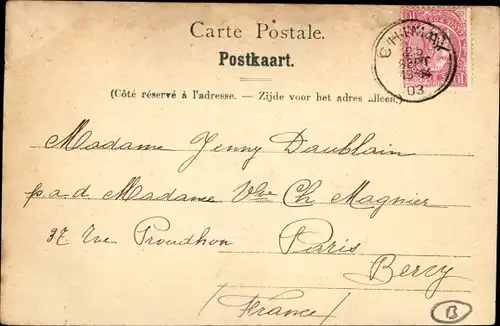 Carte Postale.
Postkaart.
(Côté réservé à l'adresse. — Zijde voor het adres alleen.)
CHIMAY
25
SEPT
03
10
10
Madame Jenny Daublain
p.a.d Madame Vve Ch Magnier
37 rue Proudhon Paris
Bercy
(France)
B